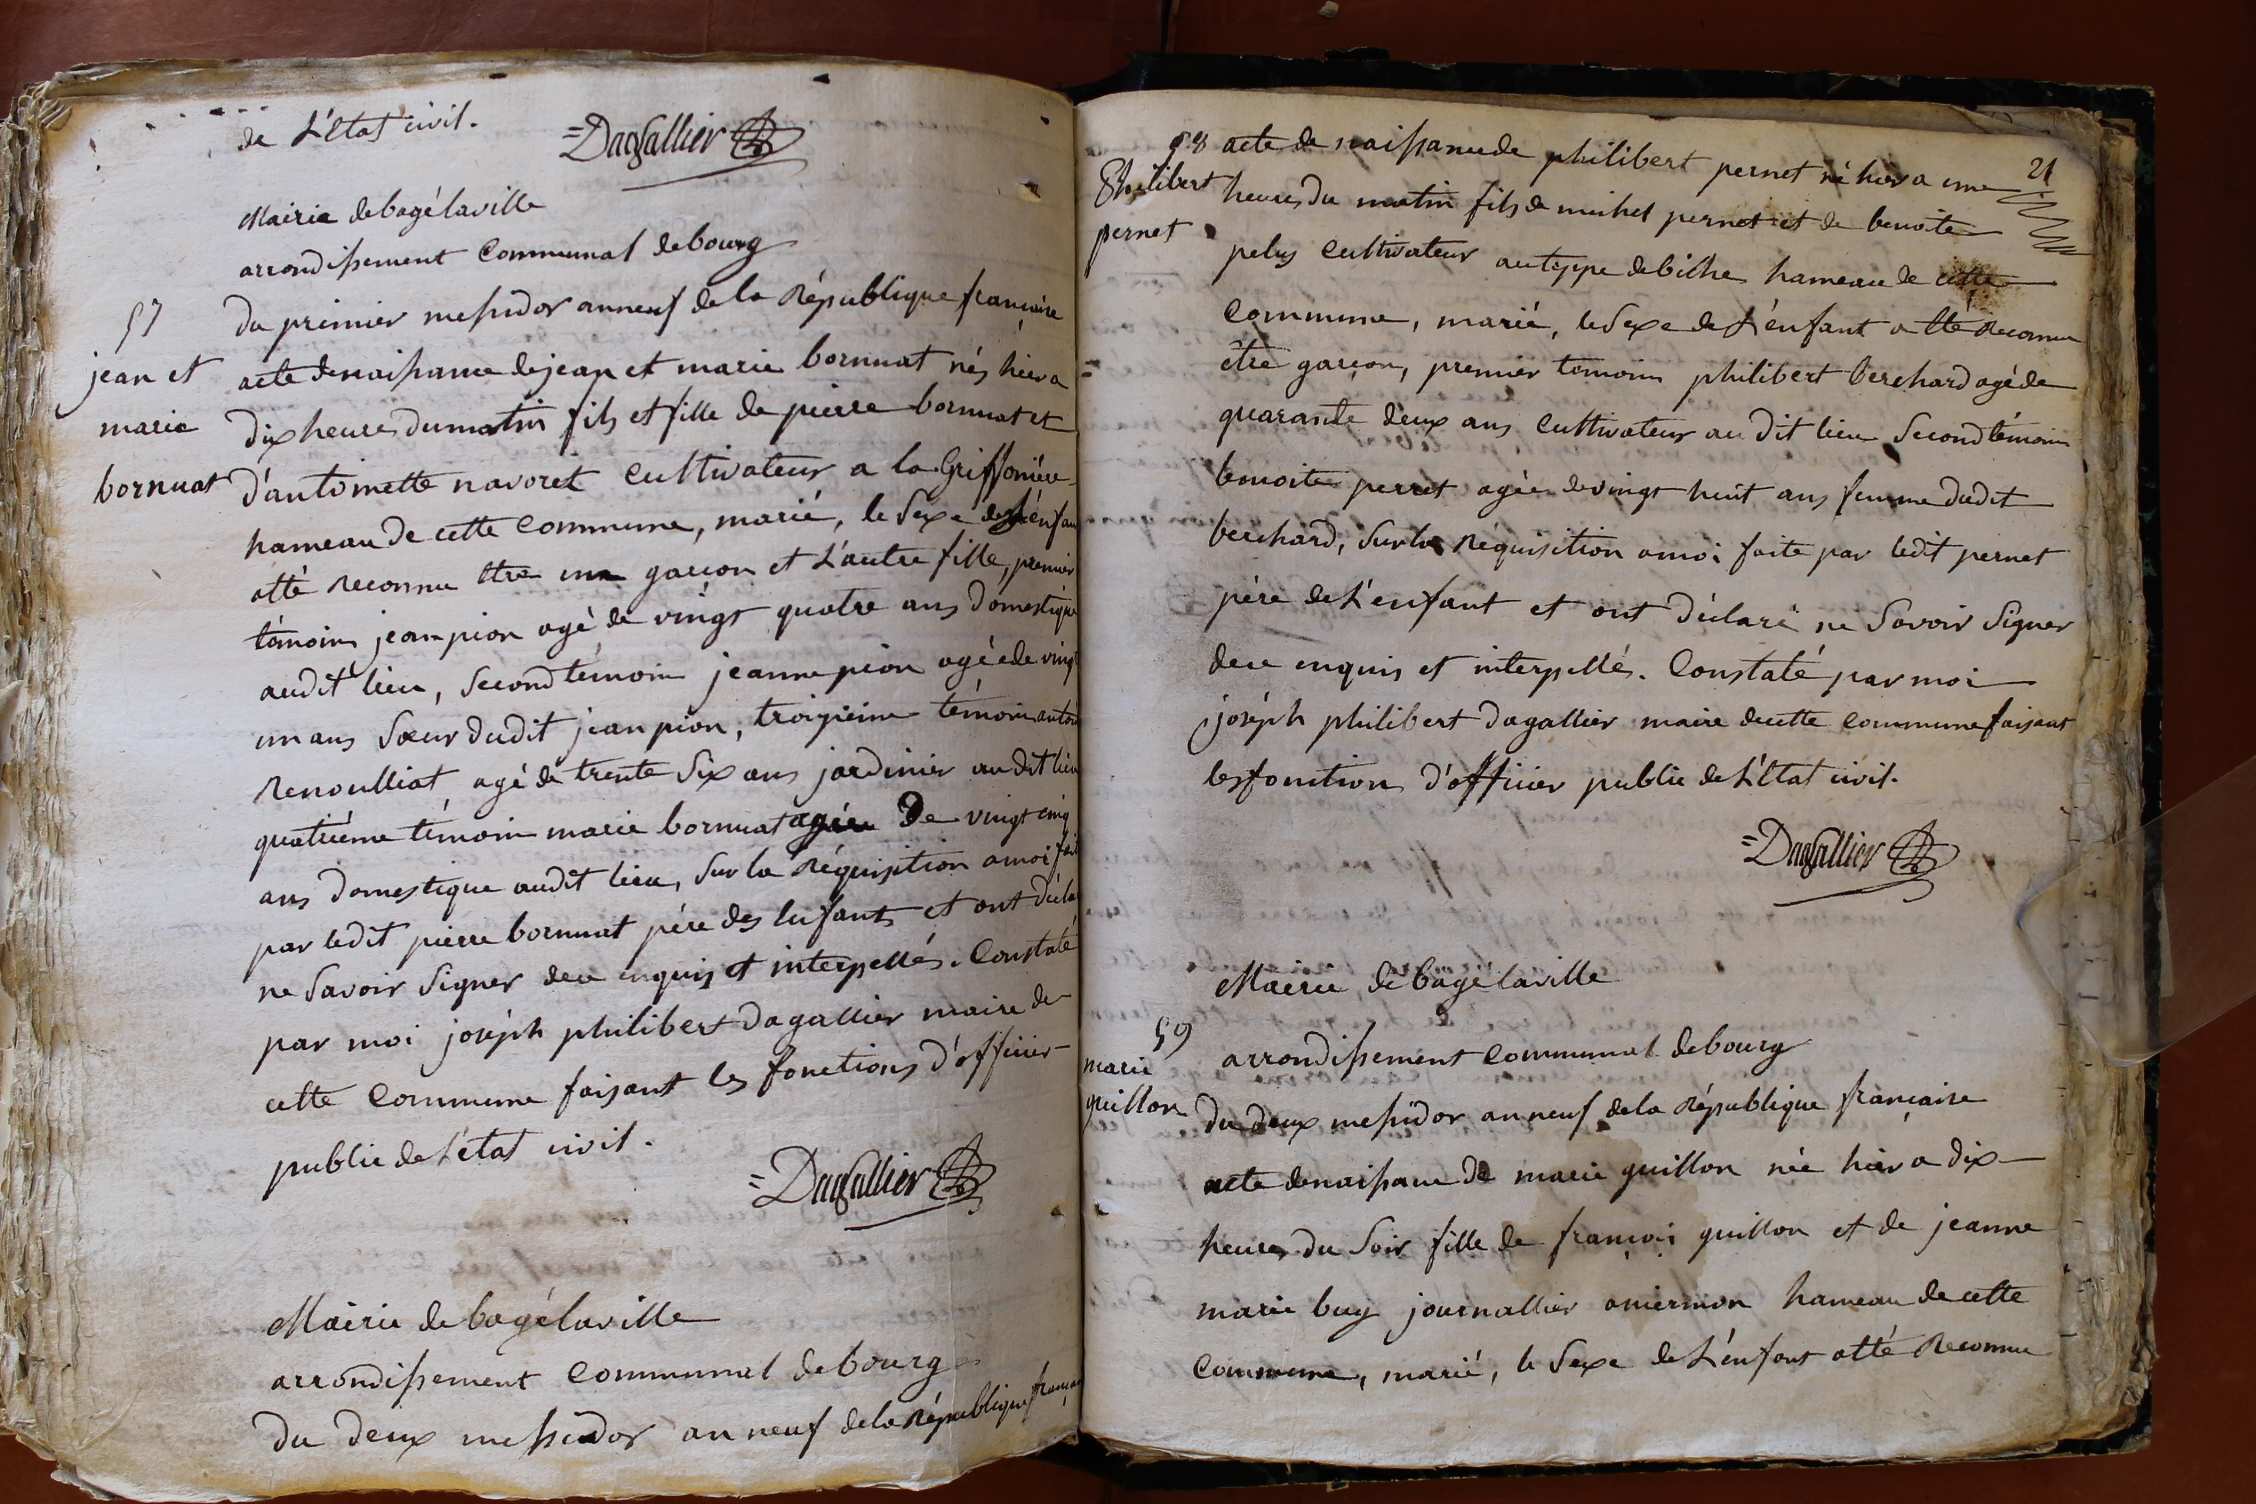 de L'Etat civil.
=Dagallier
Mairie de bagé laville
arrondissement Communal de bourg
57
du premier messidor an neuf de la République française
jean et
marie
bornuat
acte de naissance de jean et marie bornuat nés hier a
dix heures du matin fils et fille de pierre bornuat et
d'antoinette navoret cultivateur a la Griffonière
hameau de cette Commune, marié, le Sexe des énfan
atté Reconnu Etre un garçon et L'autre fille, premier
témoin jean pion agé de vingt quatre ans domestique
audit lieu, Second témoin jeanne pion agée de vingt
un ans Sœur dudit jean pion, troizième témoin antoi
Renoulliat agé de trente Six ans jardinier au dit lieu
quatriéme témoin marie bornuat agée De vingt cinq
ans domestique audit lieu, Sur la Réquisition a moi fait
par ledit pierre bornuat pére des Enfants et ont décla
ne Savoir Signer de ce enquis et interpellés. Constaté
par moi joséph philibert Dagallier maire de
cette Commune faisant les fonctions d'officier
public de L'état civil.
=Dagallier
Mairie de bagé laville
arrondissement Communal de bourg
du deux messidor an neuf de la République françai
21
58
Philibert
pernet
acte de naissance de philibert pernet né hier a une
heures du matin fils de michel pernet et de benoite
pelus cultivateur au teppe de biche hameau de cette
Commune, marié, le Sexe de L'énfant a été Reconnu
être garçon, premier témoin philibert berchard agé de
quarante deux ans cultivateur au dit lieu Second témoin
benoite perret agée de vingt huit ans femme dudit
berchard, Sur la Réquisition a moi faite par ledit pernet
père de L'enfant et ont déclaré ne Savoir Signer
de ce enquis et interpellés. Constaté par moi
joséph philibert Dagallier maire de cette commune faisant
les fonction d'officier public de L'Etat civil.
=Dagallier
Mairie de bagé laville
59
marie
guillon
arrondissement Communal de bourg
du deux messidor an neuf de la République française
acte de naissance de marie guillon née hier a dix
heures du Soir fille de françois guillon et de jeanne
marie buy journallier a mermon hameau de cette
Commune, marié, le Sexe de L'énfant atté Reconnu